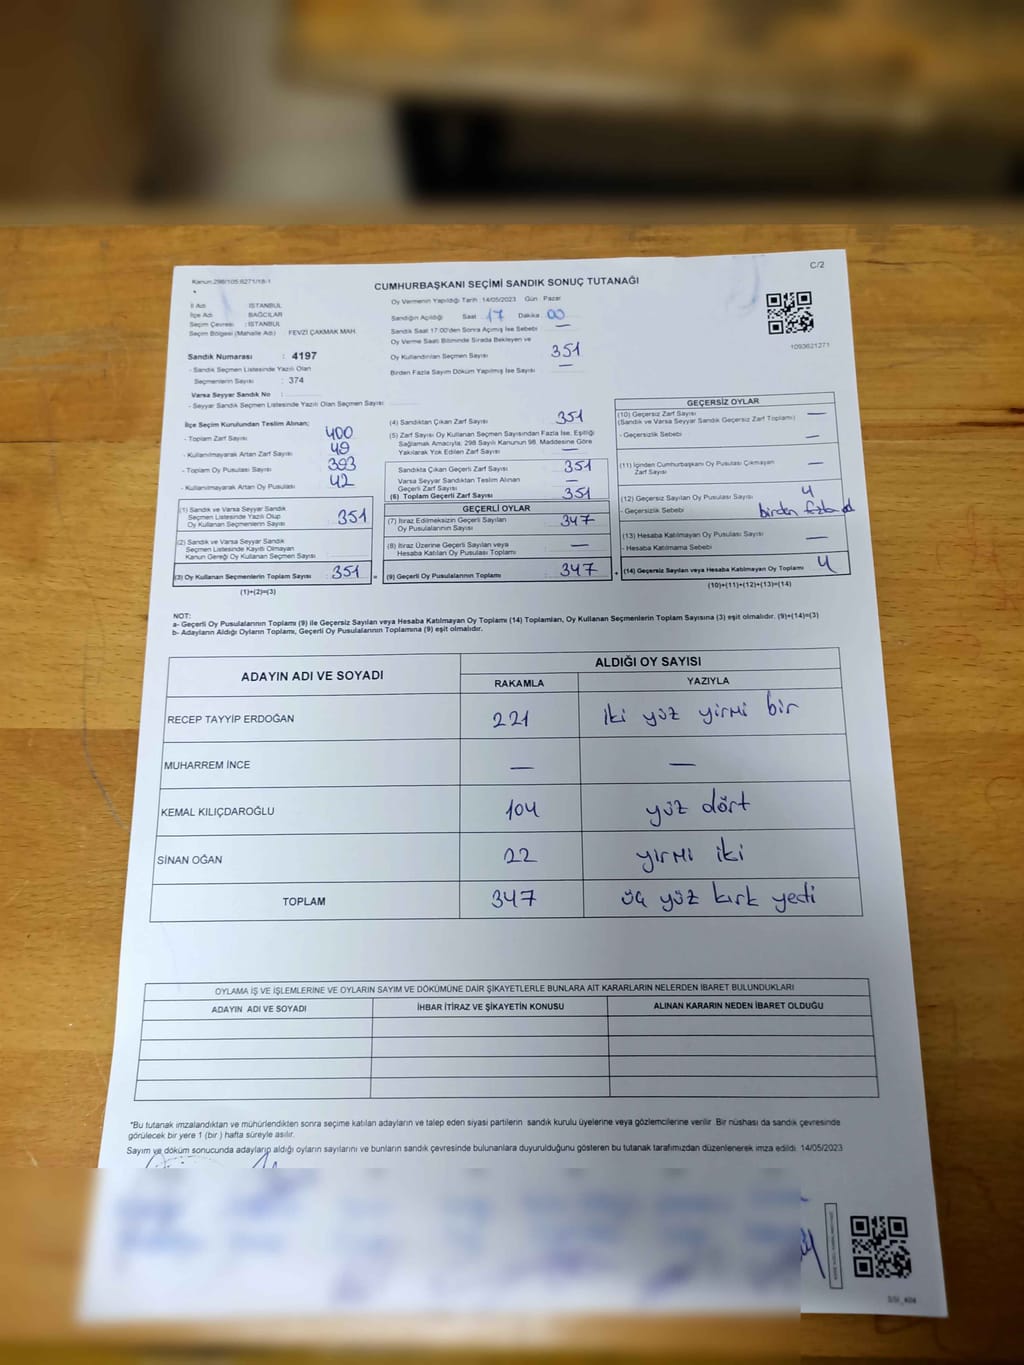 Kanun:298/105:6271/18-1
C/2
CUMHURBAŞKANI SEÇİMİ SANDIK SONUÇ TUTANAĞI
İl Adı : İSTANBUL
İlçe Adı : BAĞCILAR
Seçim Çevresi : İSTANBUL
Seçim Bölgesi (Mahalle Adı) : FEVZİ ÇAKMAK MAH.
Sandık Numarası : 4197
- Sandık Seçmen Listesinde Yazılı Olan
Seçmenlerin Sayısı : 374
Varsa Seyyar Sandık No :
- Seyyar Sandık Seçmen Listesinde Yazılı Olan Seçmen Sayısı :
Oy Vermenin Yapıldığı Tarih : 14/05/2023 Gün : Pazar
Sandığın Açıldığı Saat 17 Dakika 00
Sandık Saat 17:00'den Sonra Açılmış İse Sebebi : —
Oy Verme Saati Bitiminde Sırada Bekleyen ve
Oy Kullandırılan Seçmen Sayısı : 351
Birden Fazla Sayım Döküm Yapılmış İse Sayısı : —
1093621271
İlçe Seçim Kurulundan Teslim Alınan;
- Toplam Zarf Sayısı : 400
- Kullanılmayarak Artan Zarf Sayısı : 49
- Toplam Oy Pusulası Sayısı : 393
- Kullanılmayarak Artan Oy Pusulası : 42
(1) Sandık ve Varsa Seyyar Sandık
Seçmen Listesinde Yazılı Olup
Oy Kullanan Seçmenlerin Sayısı : 351
(2) Sandık ve Varsa Seyyar Sandık
Seçmen Listesinde Kayıtlı Olmayan
Kanun Gereği Oy Kullanan Seçmen Sayısı :
(3) Oy Kullanan Seçmenlerin Toplam Sayısı : 351 =
(1)+(2)=(3)
(4) Sandıktan Çıkan Zarf Sayısı : 351
(5) Zarf Sayısı Oy Kullanan Seçmen Sayısından Fazla İse; Eşitliği
Sağlamak Amacıyla; 298 Sayılı Kanunun 98. Maddesine Göre
Yakılarak Yok Edilen Zarf Sayısı : —
Sandıkta Çıkan Geçerli Zarf Sayısı : 351
Varsa Seyyar Sandıktan Teslim Alınan
Geçerli Zarf Sayısı : —
(6) Toplam Geçerli Zarf Sayısı : 351
GEÇERLİ OYLAR
(7) İtiraz Edilmeksizin Geçerli Sayılan
Oy Pusulalarının Sayısı : 347
(8) İtiraz Üzerine Geçerli Sayılan veya
Hesaba Katılan Oy Pusulası Toplamı : —
(9) Geçerli Oy Pusulalarının Toplamı : 347 +
GEÇERSİZ OYLAR
(10) Geçersiz Zarf Sayısı : —
(Sandık ve Varsa Seyyar Sandık Geçersiz Zarf Toplamı)
- Geçersizlik Sebebi : —
(11) İçinden Cumhurbaşkanı Oy Pusulası Çıkmayan
Zarf Sayısı : —
(12) Geçersiz Sayılan Oy Pusulası Sayısı : 4
- Geçersizlik Sebebi : birden fazla
(13) Hesaba Katılmayan Oy Pusulası Sayısı : —
- Hesaba Katılmama Sebebi :
(14) Geçersiz Sayılan veya Hesaba Katılmayan Oy Toplamı : 4
(10)+(11)+(12)+(13)=(14)
NOT:
a- Geçerli Oy Pusulalarının Toplamı (9) ile Geçersiz Sayılan veya Hesaba Katılmayan Oy Toplamı (14) Toplamları, Oy Kullanan Seçmenlerin Toplam Sayısına (3) eşit olmalıdır. (9)+(14)=(3)
b- Adayların Aldığı Oyların Toplamı, Geçerli Oy Pusulalarının Toplamına (9) eşit olmalıdır.
ADAYIN ADI VE SOYADI
ALDIĞI OY SAYISI
RAKAMLA YAZIYLA
RECEP TAYYİP ERDOĞAN 221 iki yüz yirmi bir
MUHARREM İNCE — —
KEMAL KILIÇDAROĞLU 104 yüz dört
SİNAN OĞAN 22 yirmi iki
TOPLAM 347 üç yüz kırk yedi
OYLAMA İŞ VE İŞLEMLERİNE VE OYLARIN SAYIM VE DÖKÜMÜNE DAİR ŞİKAYETLERLE BUNLARA AİT KARARLARIN NELERDEN İBARET BULUNDUKLARI
ADAYIN ADI VE SOYADI İHBAR İTİRAZ VE ŞİKAYETİN KONUSU ALINAN KARARIN NEDEN İBARET OLDUĞU
*Bu tutanak imzalandıktan ve mühürlendikten sonra seçime katılan adayların ve talep eden siyasi partilerin sandık kurulu üyelerine veya gözlemcilerine verilir. Bir nüshası da sandık çevresinde
görülecek bir yere 1 (bir) hafta süreyle asılır.
Sayım ve döküm sonucunda adayların aldığı oyların sayılarını ve bunların sandık çevresinde bulunanlara duyurulduğunu gösteren bu tutanak tarafımızdan düzenlenerek imza edildi. 14/05/2023